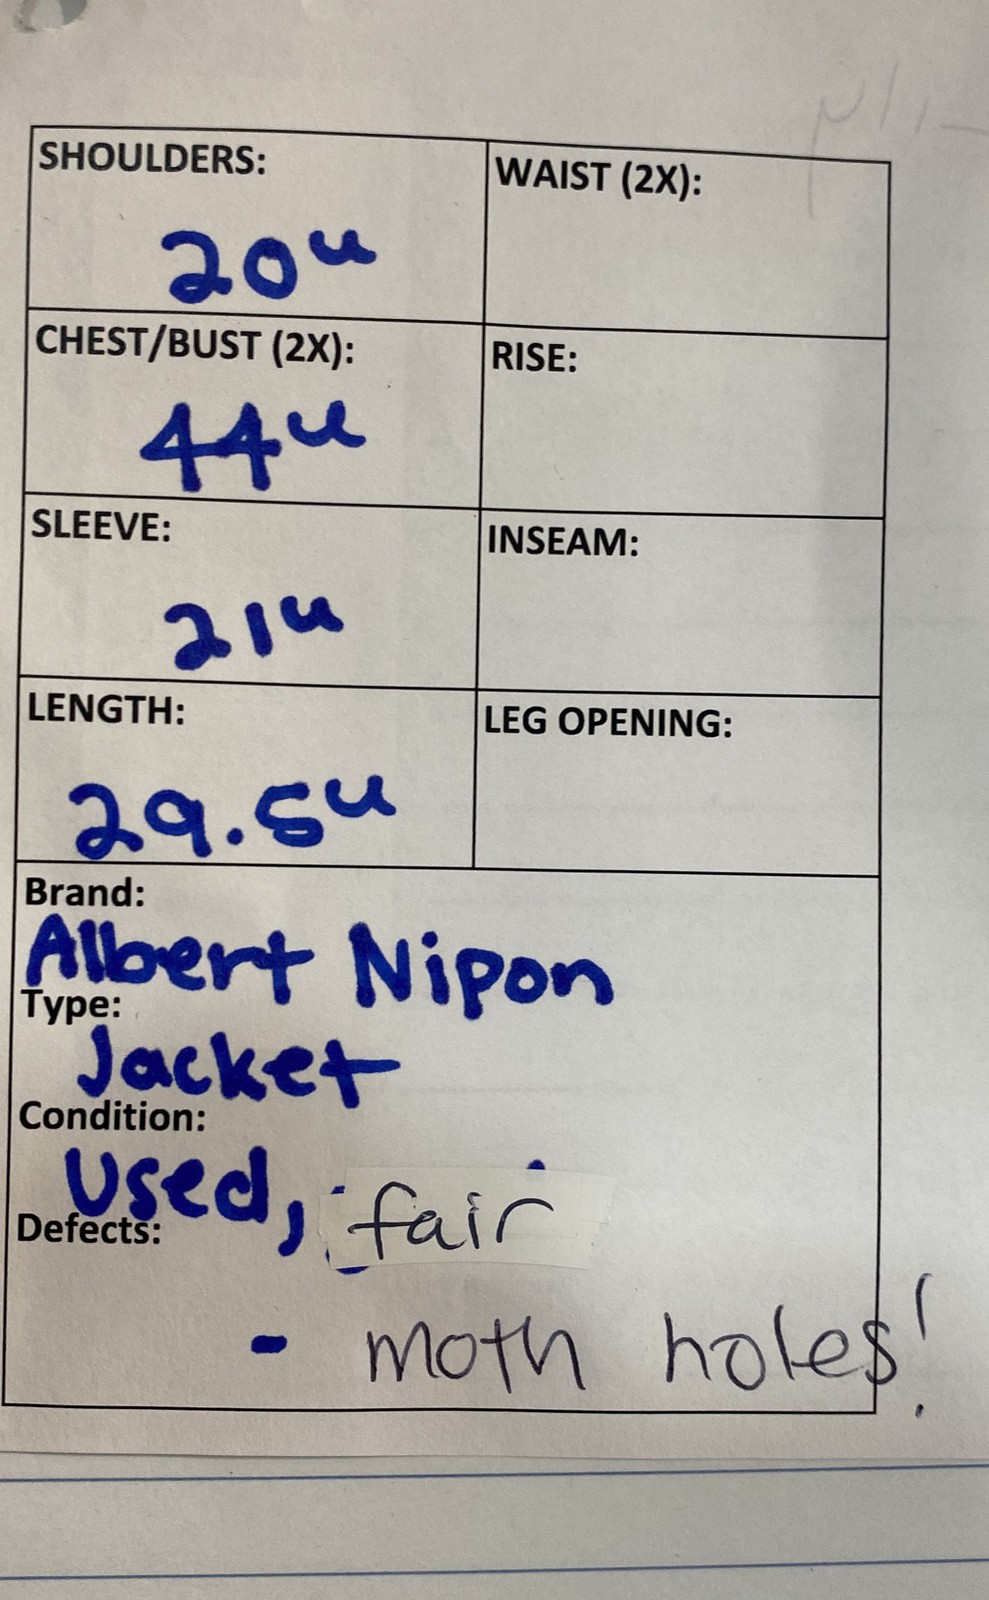 SHOULDERS:
20"
WAIST (2X):
CHEST/BUST (2X):
44"
RISE:
SLEEVE:
21"
INSEAM:
LENGTH:
29.5"
LEG OPENING:
Brand:
Albert Nipon
Type:
Jacket
Condition:
Used, fair
Defects:
- moth holes!